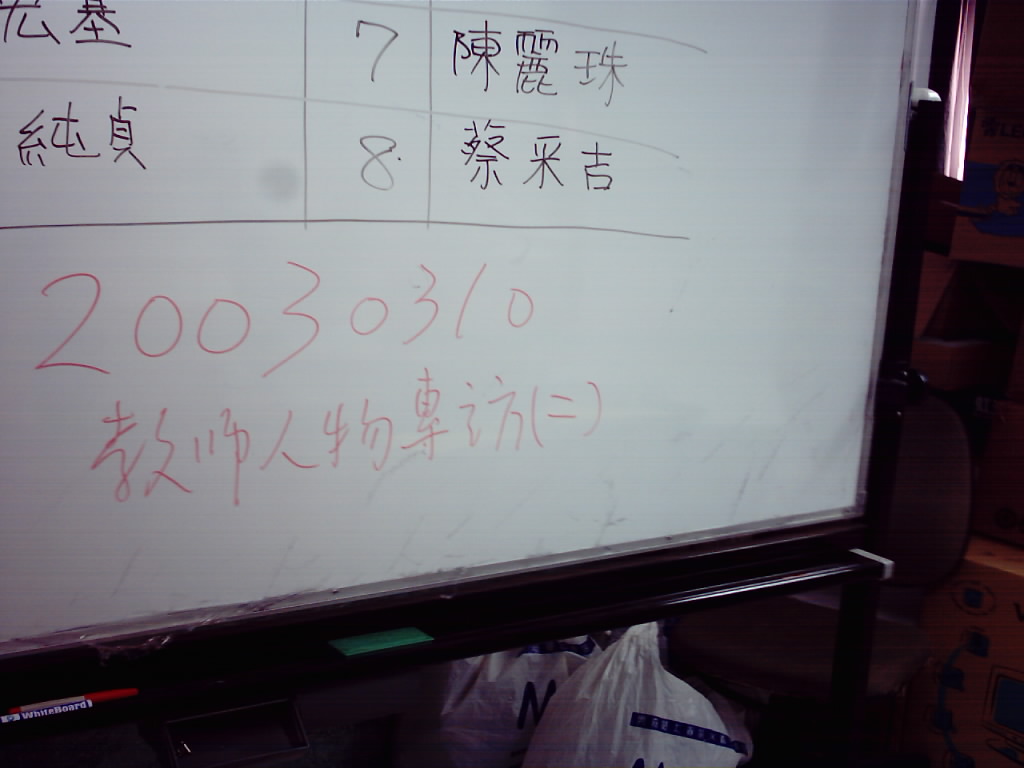 宏基 7 陳麗珠
純貞 8. 蔡采吉
20030310
教师人物專访(二)
WhiteBoard